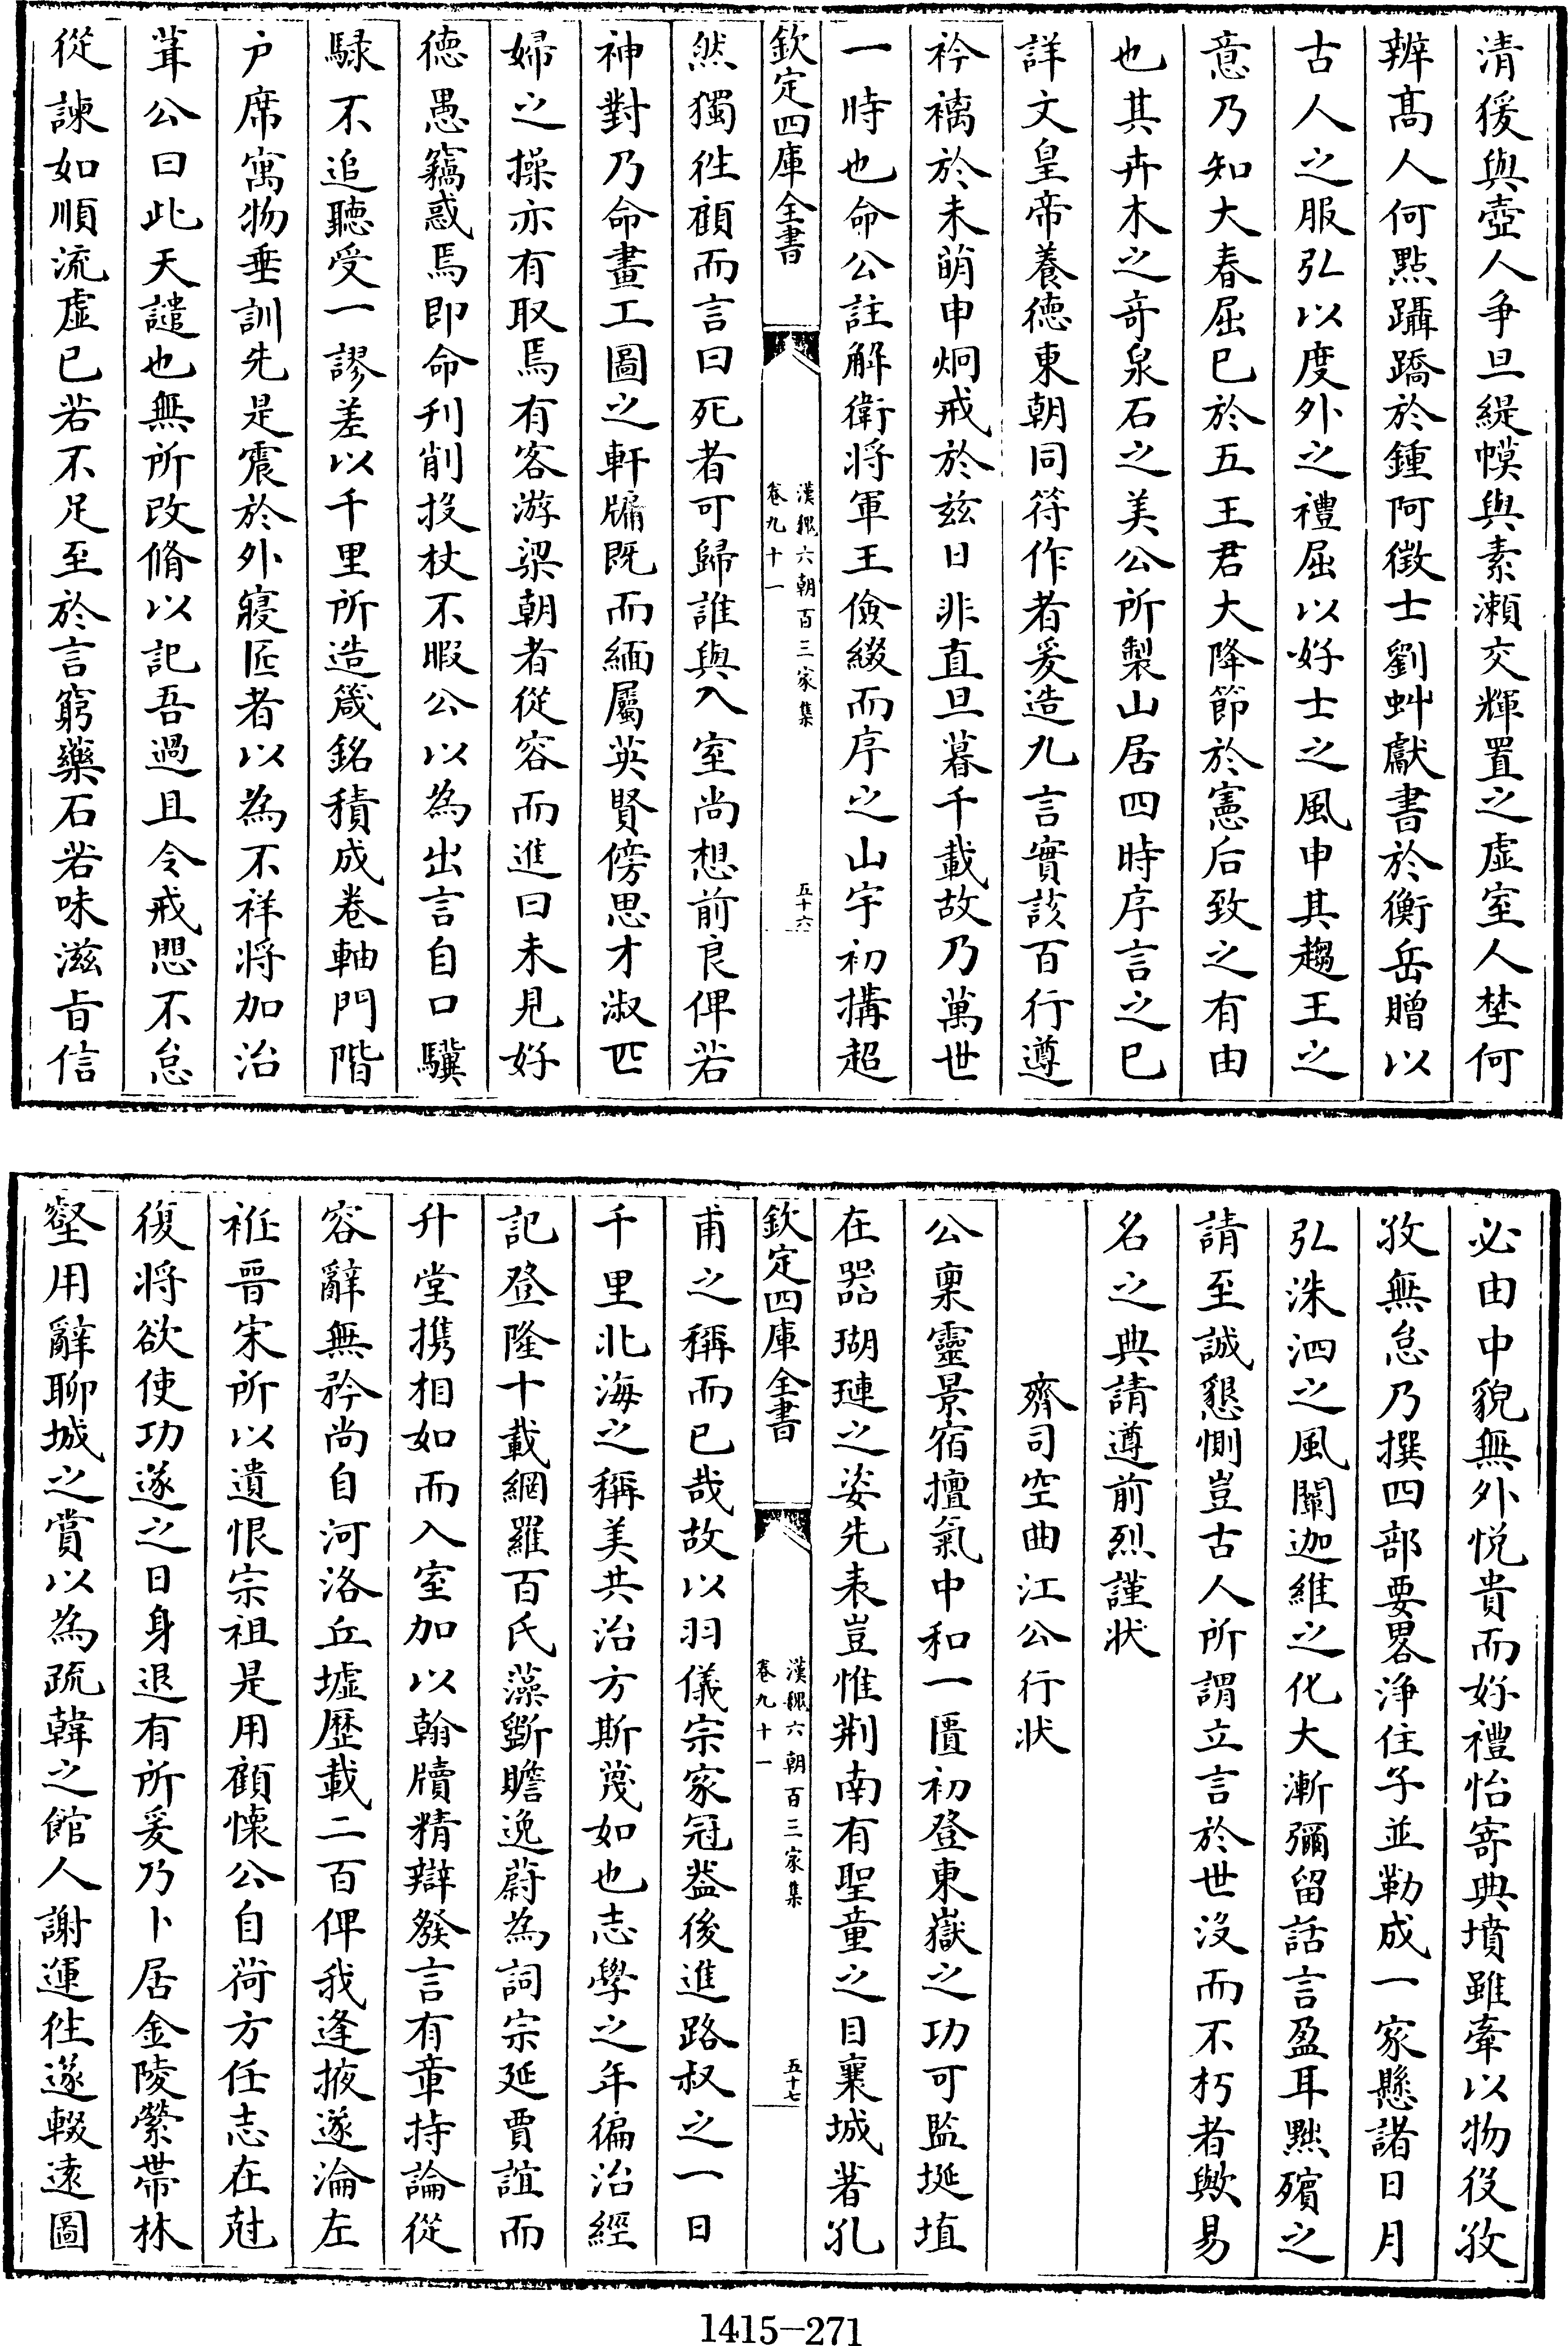 清猨與壺人争旦緹幙與素瀬交輝置之虚室人埜何
辨髙人何㸃躡蹻於鍾阿徴士劉虯獻書於衡岳贈以
古人之服弘以度外之禮屈以好士之風申其趨王之
意乃知大春屈已於五王君大降節於憲后致之有由
也其卉木之竒泉石之美公所製山居四時序言之已
詳文皇帝養徳東朝同符作者爰造九言實該百行遵
衿褵於未萌申炯戒於兹日非直旦暮千載故乃萬世
一時也命公註解衛将軍王儉綴而序之山宇初搆超
欽定四庫全書 漢魏六朝百三家集 卷九十一 五十六
然獨徃顧而言曰死者可歸誰與入室尚想前良俾若
神對乃命畫工圖之軒牖既而緬屬英賢傍思才淑匹
婦之操亦有取焉有客游梁朝者從容而進曰未見好
徳愚竊惑焉即命刋削投杖不暇公以為出言自口驥
騄不追聽受一謬差以千里所造箴銘積成巻軸門階
户席寓物垂訓先是震於外寢匠者以為不祥将加治
葺公曰此天譴也無所改脩以記吾過且令戒愳不怠
從諫如順流虚已若不足至於言窮藥石若味滋旨信
必由中貌無外悦貴而好禮怡寄典墳雖牽以物役孜
孜無怠乃撰四部要畧浄住子並勒成一家懸諸日月
弘洙泗之風闡迦維之化大漸彌留話言盈耳黙殯之
請至誠懇惻豈古人所謂立言於世沒而不朽者歟易
名之典請遵前烈謹状
齊司空曲江公行状
公稟靈景宿擅氣中和一匱初登東嶽之功可監埏埴
在器瑚璉之姿先表豈惟荆南有聖童之目襄城著孔
欽定四庫全書 漢魏六朝百三家集 卷九十一 五十七
甫之稱而已哉故以羽儀宗家冠葢後進路叔之一日
千里北海之稱美共治方斯蔑如也志學之年徧治經
記登隆十載網羅百氏藻斵贍逸蔚為詞宗延賈誼而
升堂携相如而入室加以翰牘精辯發言有章持論從
容辭無矜尚自河洛丘墟歴載二百俾我逢掖遂淪左
袵晋宋所以遺恨宗祖是用顧懐公自荷方任志在尅
復将欲使功遂之日身退有所爰乃卜居金陵縈帶林
壑用辭聊城之賞以為疏韓之館人謝運徃遂輟逺圖
1415-271